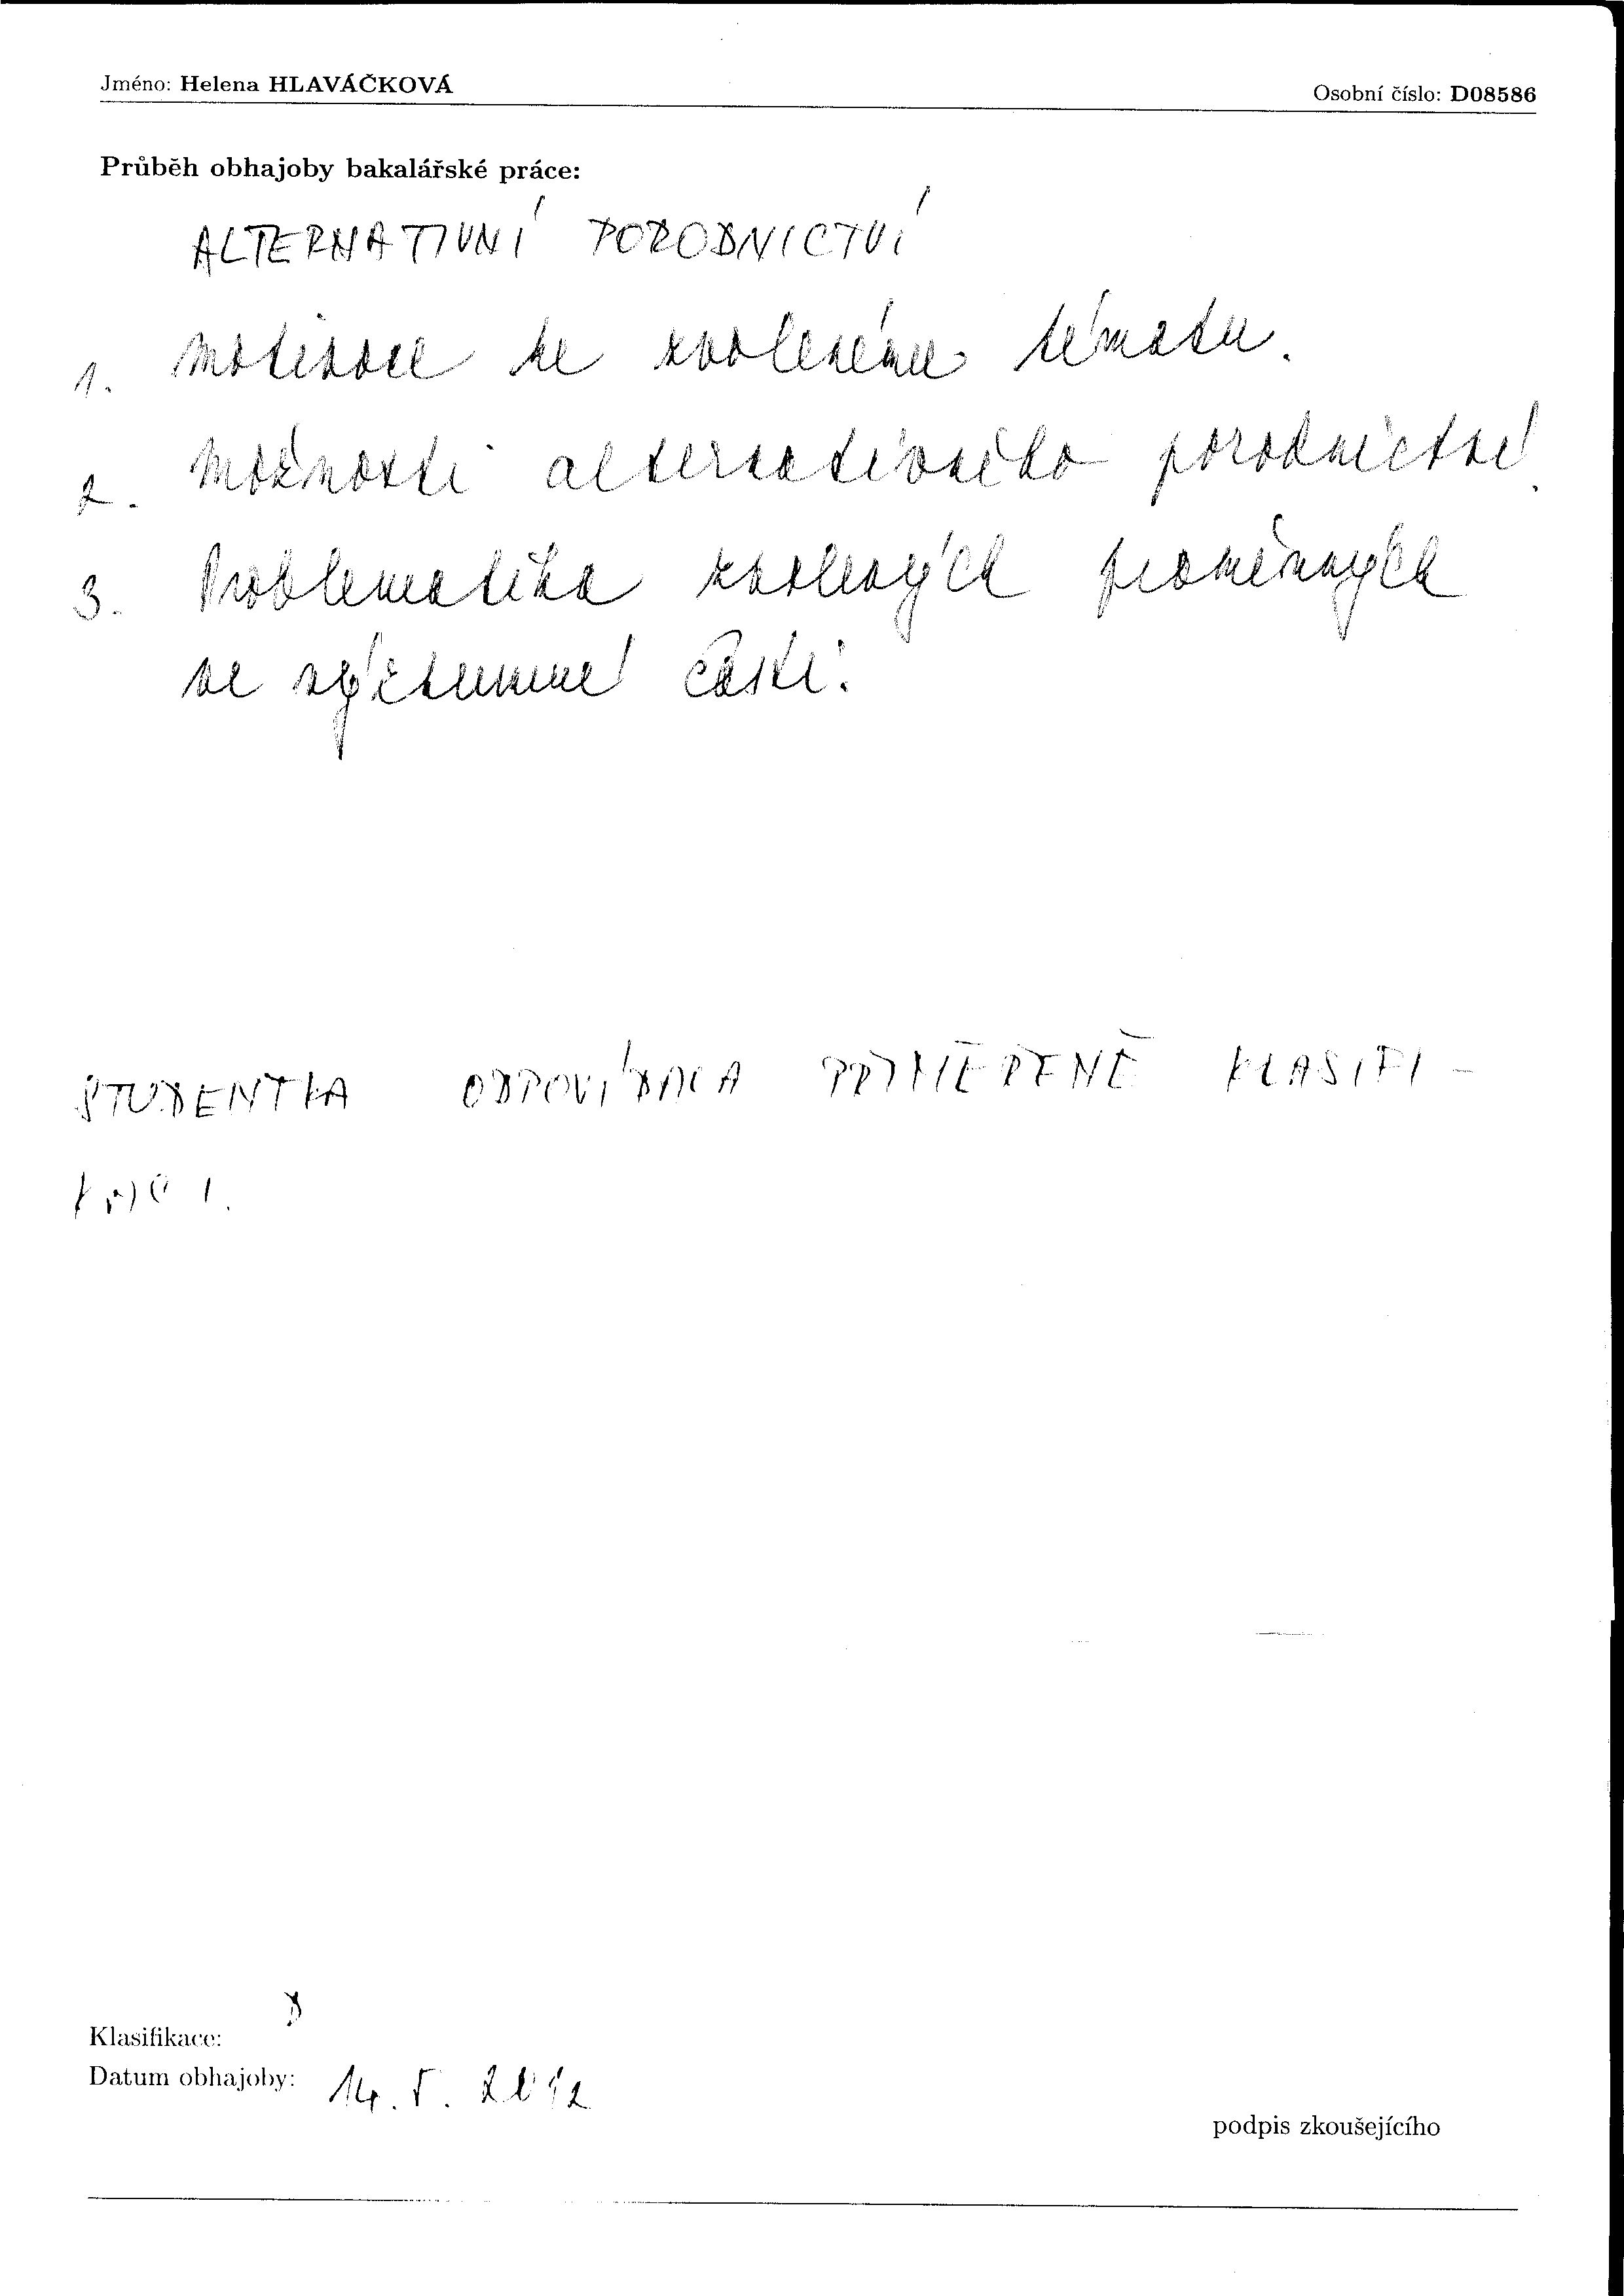 Jméno: Helena HLAVÁČKOVÁ
Osobní číslo: D08586
Průběh obhajoby bakalářské práce:
ALTERNATIVNÍ PORODNICTVÍ
1. Motivace ke zvolenému tématu.
2. Možnosti alternativního porodnictví.
3. Problematika zvolených proměnných
ve výzkumné části.
STUDENTKA ODPOVÍDALA PŘIMĚŘENĚ KLASIFI-
KACI.
Klasifikace:
Datum obhajoby: 14. 5. 2012
podpis zkoušejícího